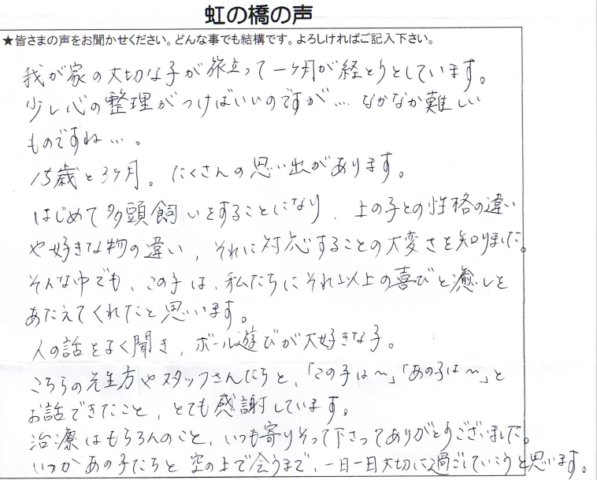 虹の橋の声
★皆さまの声をお聞かせください。どんな事でも結構です。よろしければご記入下さい。
我が家の大切な子が旅立って一ヶ月が経とうとしています。
少し心の整理がつけばいいのですが…。なかなか難しい
ものですね…。
15歳と3ヶ月。たくさんの思い出があります。
はじめて多頭飼いをすることになり、上の子との性格の違い
や好きな物の違い、それに対応することの大変さを知りました。
そんな中でも、この子は、私たちにそれ以上の喜びと癒しを
あたえてくれたと思います。
人の話をよく聞き、ボール遊びが大好きな子。
こちらの先生方やスタッフさんたちと、「この子は～」「あの子は～」と
お話できたこと、とても感謝しています。
治療はもちろんのこと、いつも寄りそって下さってありがとうございました。
いつかあの子たちと空の上で会うまで、一日一日大切に過ごしていこうと思います。